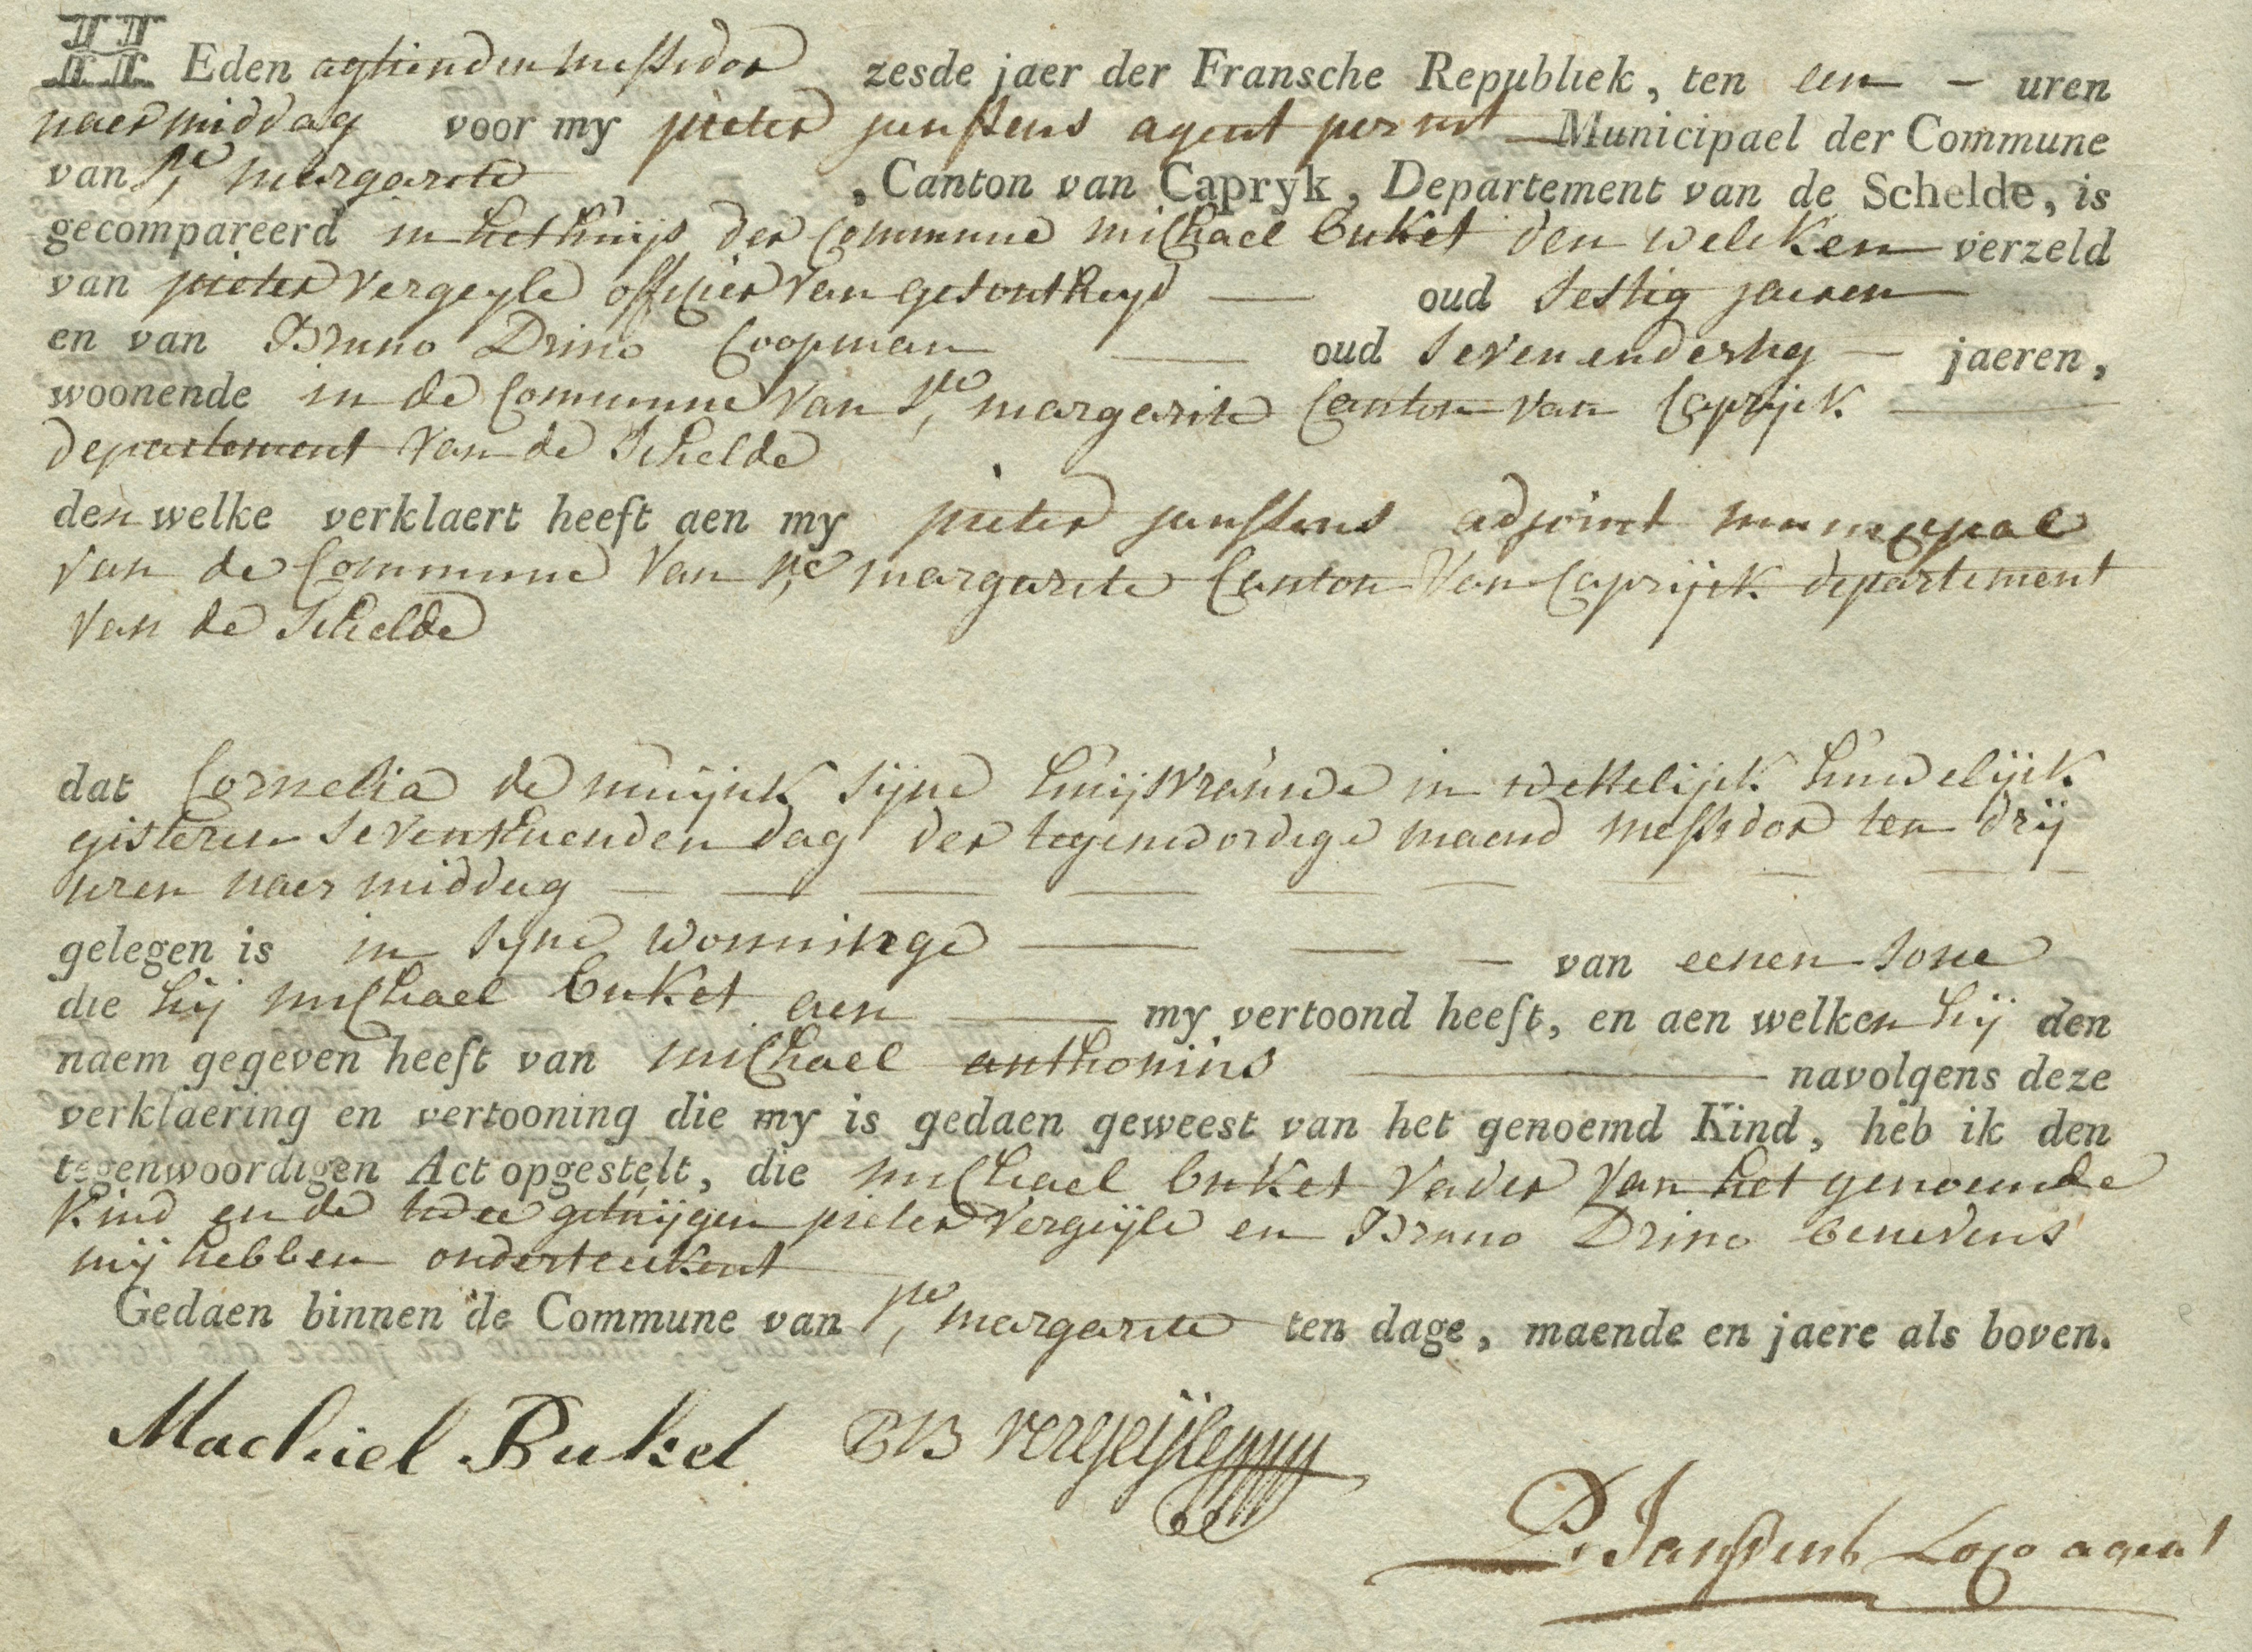 HEden aghtienden messidor zesde jaer der Fransche Republiek, ten een — uren
naermiddag voor my pieter janssens agent per int Municipael der Commune
van Ste margarite , Canton van Capryk, Departement van de Schelde, is
gecompareerd in het huijs der Commune michael buket den welcken verzeld
van pieter vergeyle officier van gesontheyd — oud sestig jaeren
en van Bruno Drino Coopman — oud sevenendertig — jaeren,
woonende in de Commune van Ste margarite Canton van Caprijck —
departement van de Schelde
den welke verklaert heeft aen my pieter janssens adjoint municipael
van de Commune van Ste margarite Canton van Caprijck departement
van de Schelde
dat Cornelia de muijnck sijne huijsvrauwe in wettelijck huwelijck
gisteren seventhienden dag der tegenwordige maend messidor ten drij
uren naer middag — — — — — — — — —
gelegen is in syne wonninge — — — van eenen sone
die hij michael buket aen — my vertoond heeft, en aen welken hij den
naem gegeven heeft van michael anthonius — navolgens deze
verklaering en vertooning die my is gedaen geweest van het genoemd Kind, heb ik den
tegenwoordigen Act opgestelt, die michael buket vader van het genoemde
kind en de twee getuijgen pieter vergeijle en Bruno Drino benevens
mij hebben onderteeckent
Gedaen binnen de Commune van Ste margarite ten dage, maende en jaere als boven.
Machiel Buket PB vergeijle
P. Janssens Loco agent